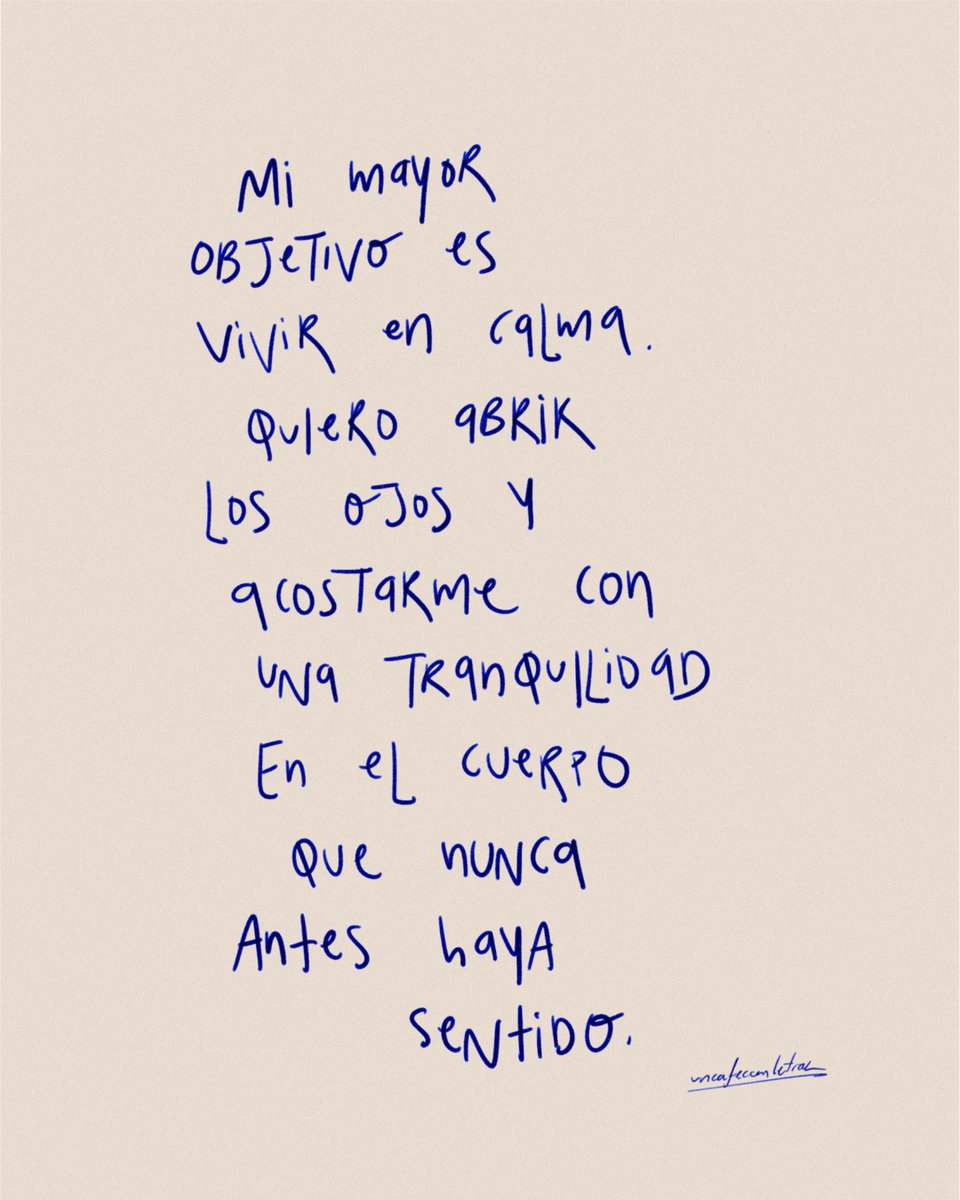 Mi mayor
objetivo es
vivir en calma.
Quiero abrir
los ojos y
acostarme con
una tranquilidad
En el cuerpo
que nunca
Antes haya
sentido.
uncafeconletras